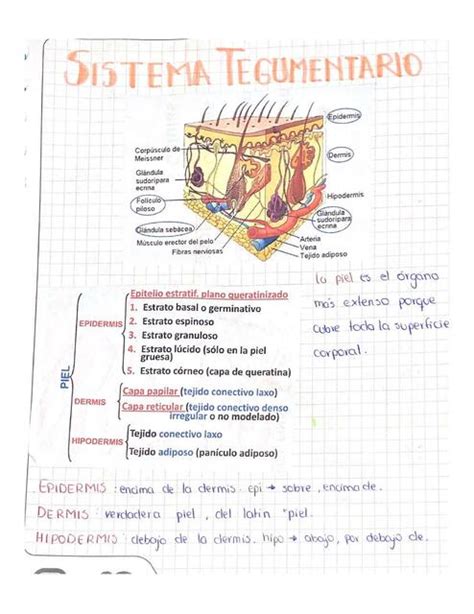 SISTEMA TEGUMENTARIO
Epidermis
Corpúsculo de
Meissner
Dermis
Glándula
sudoripara
ecrina
Folículo
piloso
Hipodermis
Glándula
sudoripara
ecrina
Glándula sebácea
Músculo erector del pelo
Arteria
Vena
Fibras nerviosas
Tejido adiposo
la piel es el órgano
más extenso porque
cubre toda la superficie
corporal.
PIEL
EPIDERMIS
Epitelio estratif. plano queratinizado
1. Estrato basal o germinativo
2. Estrato espinoso
3. Estrato granuloso
4. Estrato lúcido (sólo en la piel
gruesa)
5. Estrato córneo (capa de queratina)
DERMIS
Capa papilar (tejido conectivo laxo)
Capa reticular (tejido conectivo denso
irregular o no modelado)
HIPODERMIS
Tejido conectivo laxo
Tejido adiposo (panículo adiposo)
EPIDERMIS : encima de la dermis. epi → sobre, encima de.
DERMIS : verdadera piel, del latin "piel.
HIPODERMIS : debajo de la dermis. hipo → abajo, por debajo de.